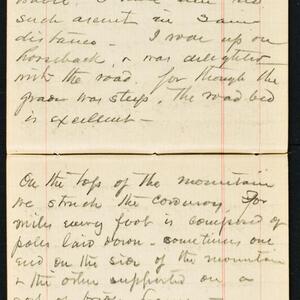 such ascent in same
distance - I was up on
horseback, & was delighted
with the road. for though the
grade was steep, the road bed
is excellent -
On the top of the mountain
we struck the corduroy, For
miles every foot is composed of
poles laid down - sometimes one
end on the side of the mountain
& the other supported on a